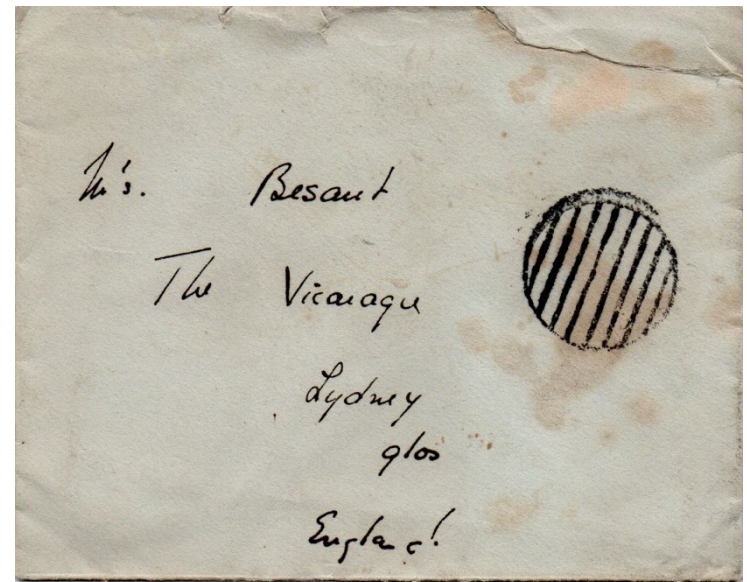 Mrs. Besant
The Vicarage
Lydney
glos
England